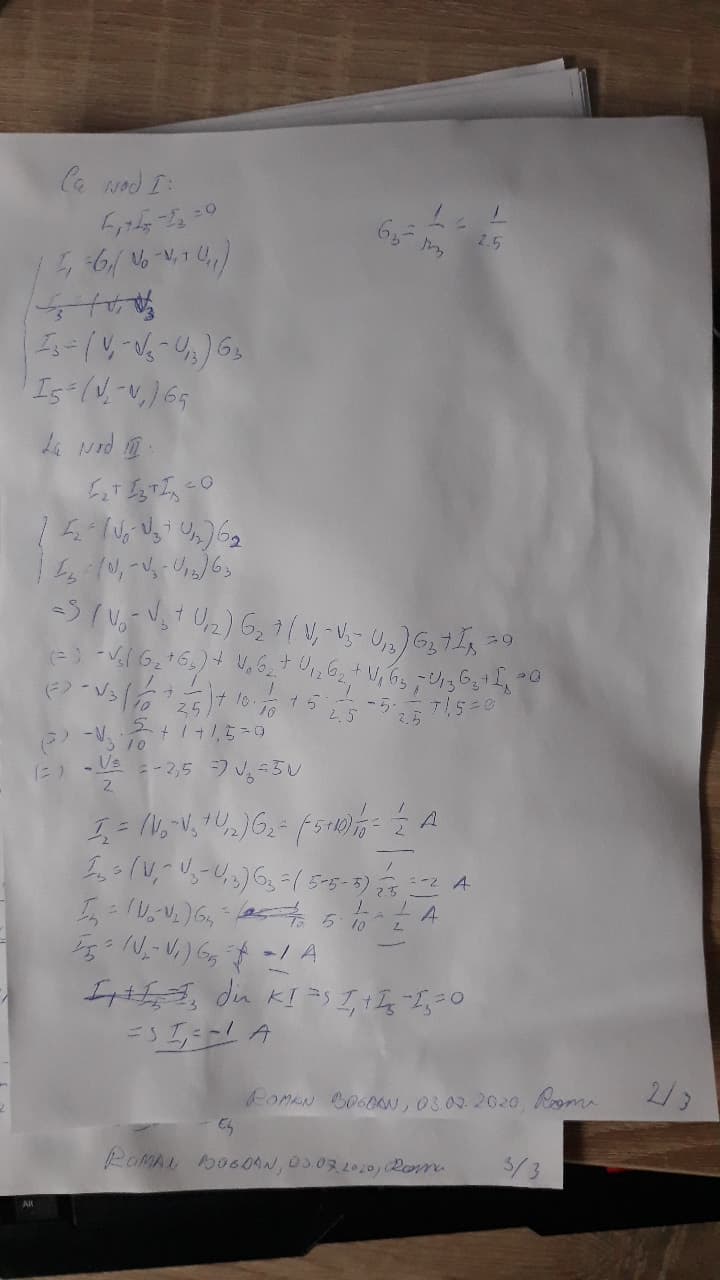 La nod I:
I₁+I₅-I₃=0
G₃=1/R₃=1/2.5
I₁=G₁(V₀-V₁+U₁₁)
I₃=(V₁-V₃-U₁₃)G₃
I₅=(V₂-V₁)G₅
La nod III:
I₂+I₃+Iₛ=0
I₂=(V₀-V₃+U₁₂)G₂
I₃=(V₁-V₃-U₁₃)G₃
=>(V₀-V₃+U₁₂)G₂+(V₁-V₃-U₁₃)G₃+Iₛ=0
(=) -V₃(G₂+G₃)+V₀G₂+U₁₂G₂+V₁G₃-U₁₃G₃+Iₛ=0
(=) -V₃(1/10+1/2,5)+10·1/10+5·1/2.5-5·1/2.5+1,5=0
(=) -V₃·5/10+1+1,5=0
(=) -V₃/2=-2,5 => V₃=5V
I₂=(V₀-V₃+U₁₂)G₂=(-5+10)1/10=1/2 A
I₃=(V₁-V₃-U₁₃)G₃=(5-5-5)1/2.5=-2 A
I₄=(V₀-V₂)G₄= 5·1/10=1/2 A
I₅=(V₂-V₁)G₅= -1 A
din KI => I₁+I₅-I₃=0
=> I₁=-1 A
ROMAN BOGDAN, 03.07.2020, 2/3
ROMAN BOGDAN, 03.07.2020, 3/3